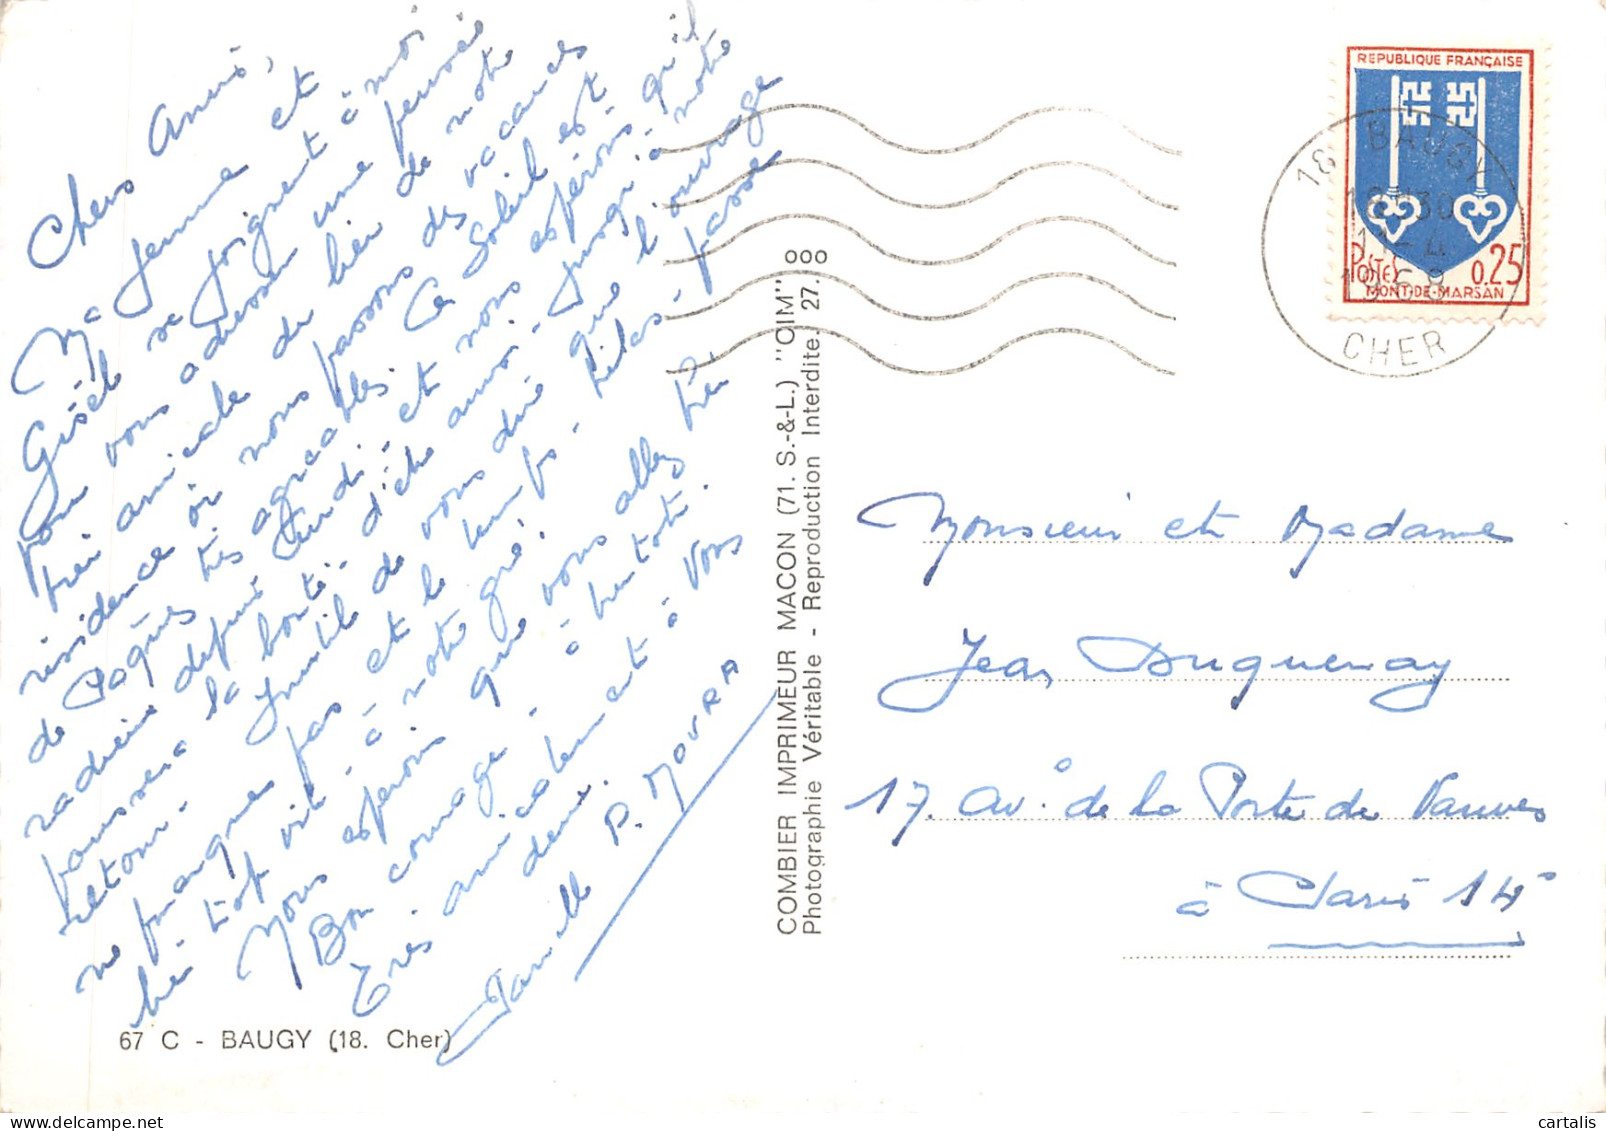 Chers Amis,
Ma femme et
Gisèle se joignent à moi
pour vous adresser une pensée
très amicale du lieu de notre
résidence où nous passons des vacances
de Pâques très agréables. Ce Soleil est
radieux depuis Lundi - et nous espérons - qu'il
poussera la bonté - d'être aussi - jusqu'à notre
retour - Inutile de vous dire que l'ouvrage
ne manque pas - et le temps - hélas - passe
trop vite - à notre gré!
Nous espérons que vous allez très
Bon courage - à bientôt.
Très amicalement à Vous
deux.
P. MOURA
67 C - BAUGY (18. Cher)
COMBIER IMPRIMEUR MACON (71. S.-&-L.) "CIM"
Photographie Véritable - Reproduction Interdite. 27.
ooo
REPUBLIQUE FRANÇAISE
POSTES 0.25
MONT-DE-MARSAN
18 BAUGY
18H30
1968
CHER
Monsieur et Madame
Jean Duquenay
17. Av. de la Porte de Vanves
à Paris 14°
cartalis